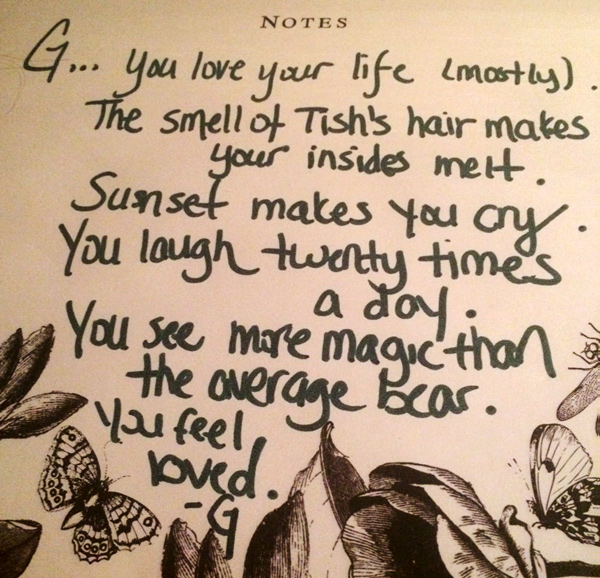 NOTES
G... you love your life (mostly).
The smell of Tish's hair makes
your insides melt.
Sunset makes you cry.
You laugh twenty times
a day.
You see more magic than
the average bear.
You feel
loved.
-G